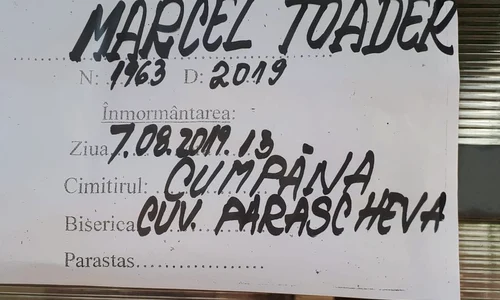 MARCEL TOADER
N: 1963 D: 2019
Înmormântarea:
Ziua 7.08.2019. 13
Cimitirul: CUMPĂNA
Biserica CUV. PARASCHEVA
Parastas...................